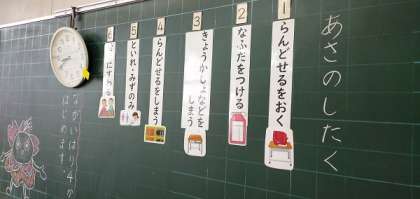 あさのしたく
1
らんどせるをおく
2
なふだをつける
3
きょうかしょなどを
しまう
4
らんどせるをしまう
5
といれ・みずのみ
6
ながいはり、4から
はじめます。